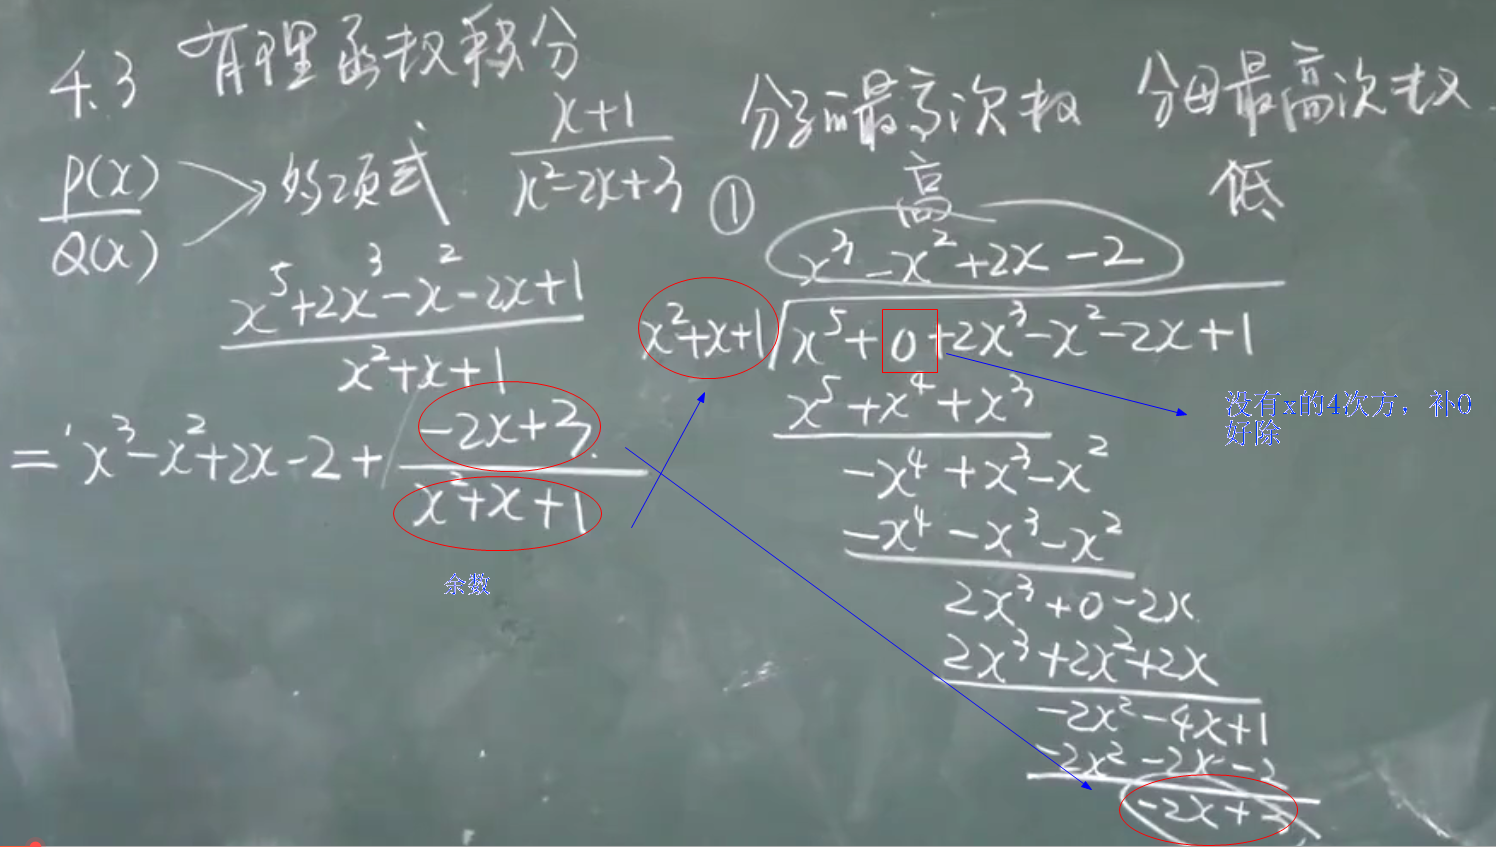 4.3 有理函数积分
P(x)/Q(x) 多项式
(x+1)/(x²-2x+3)
分子最高次数 分母最高次数
高 低
(x⁵+2x³-x²-2x+1)/(x²+x+1)
= x³-x²+2x-2+(-2x+3)/(x²+x+1)
余数
①
x³-x²+2x-2
x²+x+1 x⁵+0+2x³-x²-2x+1
x⁵+x⁴+x³
-x⁴+x³-x²
-x⁴-x³-x²
2x³+0-2x
2x³+2x²+2x
-2x²-4x+1
-2x²-2x-2
-2x+3
没有x的4次方，补0
好除